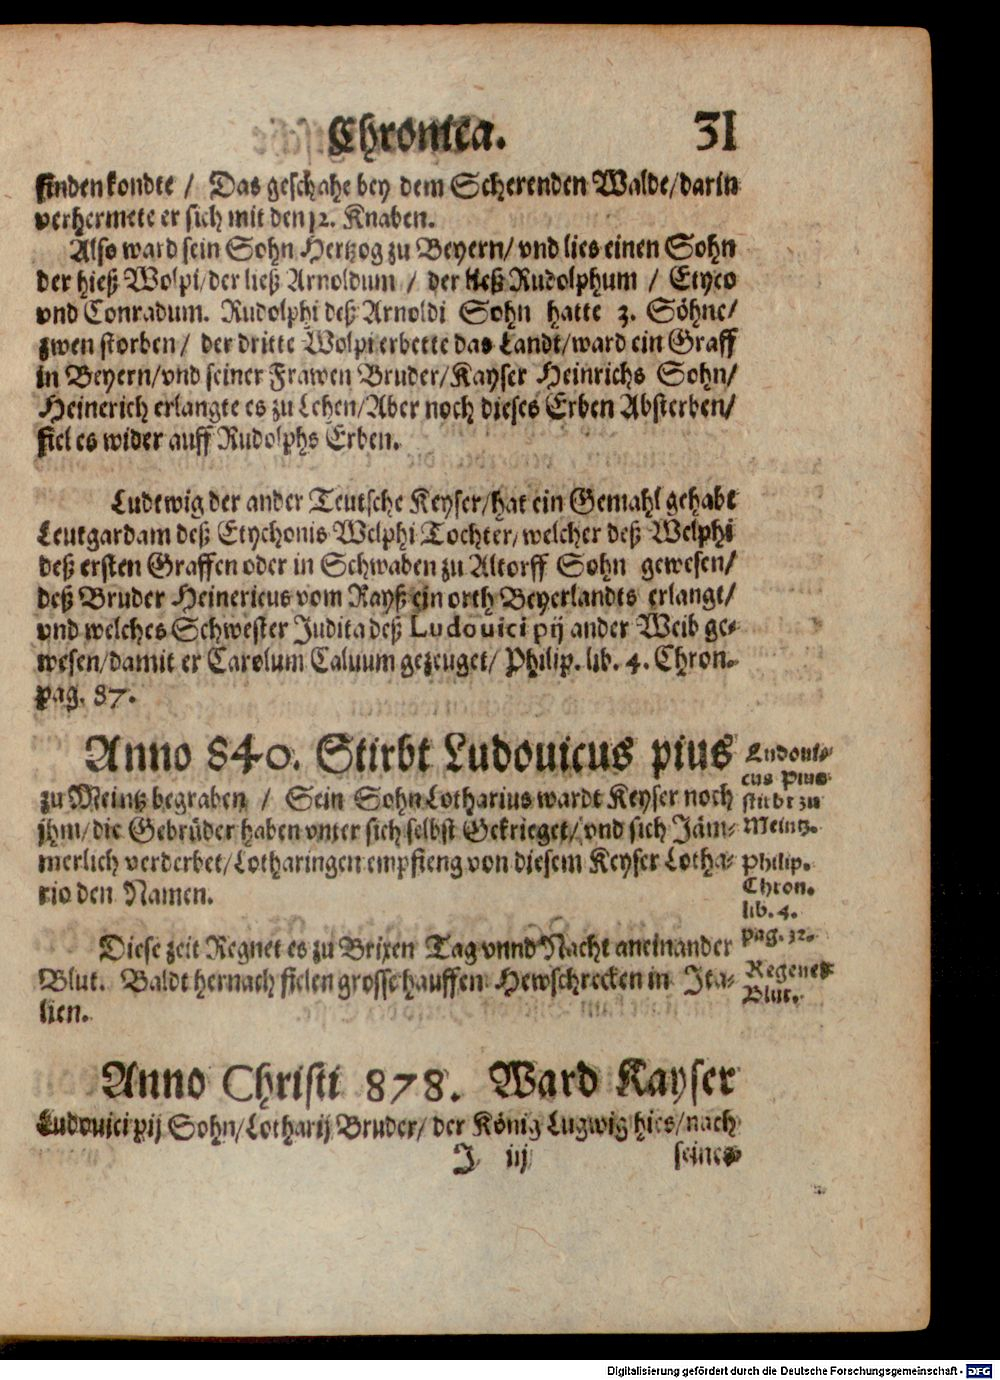 Chronica. 31
finden kondte / Das geschahe bey dem Scherenden Walde/darin
verhermete er sich mit den 12. Knaben.
Also ward sein Sohn Hertzog zu Beyern/ vnd lies einen Sohn
der hieß Wolpi/der ließ Arnoldum / der ließ Rudolphum / Etyco
vnd Conradum. Rudolphi deß Arnoldi Sohn hatte 3. Söhne/
zwen storben/ der dritte Wolpi erbette das Landt/ward ein Graff
in Beyern/vnd seiner Frawen Bruder/Kayser Heinrichs Sohn/
Heinerich erlangte es zu Lehen/Aber noch dieses Erben Absterben/
fiel es wider auff Rudolphs Erben.
Ludtwig der ander Teutsche Keyser/hat ein Gemahl gehabt
Leutgardam deß Etychonis Welphi Tochter/welcher deß Welphi
deß ersten Graffen oder in Schwaben zu Altorff Sohn gewesen/
deß Bruder Heinericus vom Kayß ein orth Beyerlandts erlangt/
vnd welches Schwester Judita deß Ludouici pij ander Weib ge-
wesen/damit er Carolum Caluum gezeuget/ Philip. lib. 4. Chron.
pag. 87.
Anno 840. Stirbt Ludouicus pius
zu Meintz begraben / Sein Sohn Lotharius wardt Keyser noch
jhm/die Gebrüder haben vnter sich selbst Gekrieget/ vnd sich Jäm-
merlich verderbet/Lotharingen empfieng von diesem Keyser Lotha-
rio den Namen.
Ludoui-
cus Pius
stirbt zu
Meintz.
Philip.
Chron.
lib. 4.
pag. 32.
Diese zeit Regnet es zu Brixen Tag vnnd Nacht aneinander
Blut. Baldt hernach fielen grosse hauffen Hewschrecken in Ita-
lien.
Regenet
Blut.
Anno Christi 878. Ward Kayser
Ludouici pij Sohn/Lotharij Bruder/ der König Lugwig hies/nach
J iij seines
Digitalisierung gefördert durch die Deutsche Forschungsgemeinschaft - DFG